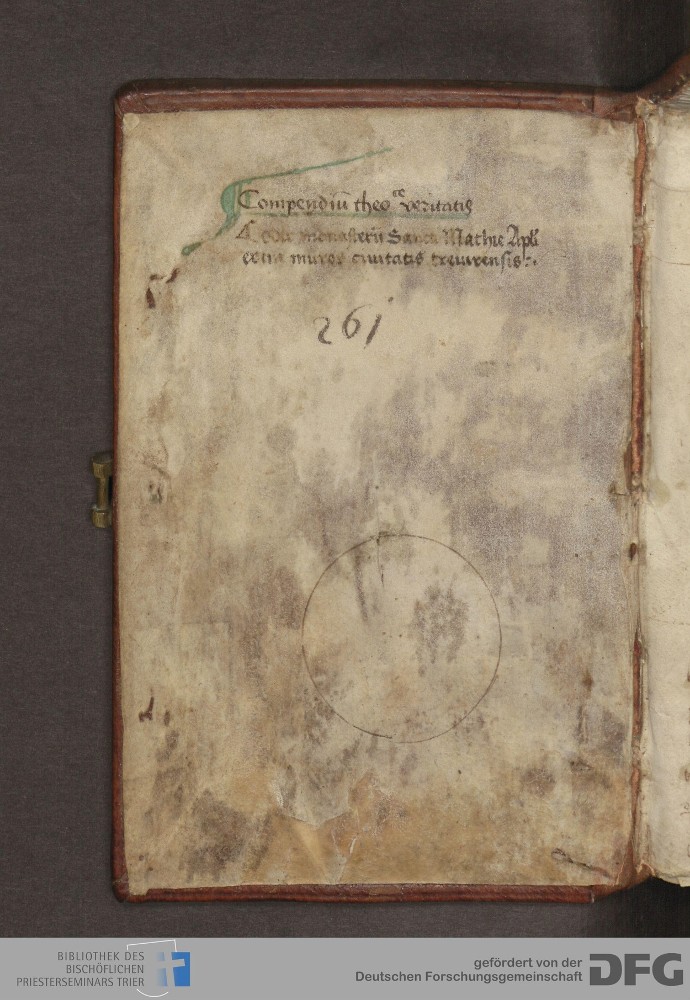 Compendiū theo^ce veritatis
Codex monasterii Sancti Mathie Apl̄i
extra muros civitatis treverensis:.
261
BIBLIOTHEK DES
BISCHÖFLICHEN
PRIESTERSEMINARS TRIER
gefördert von der
Deutschen Forschungsgemeinschaft
DFG